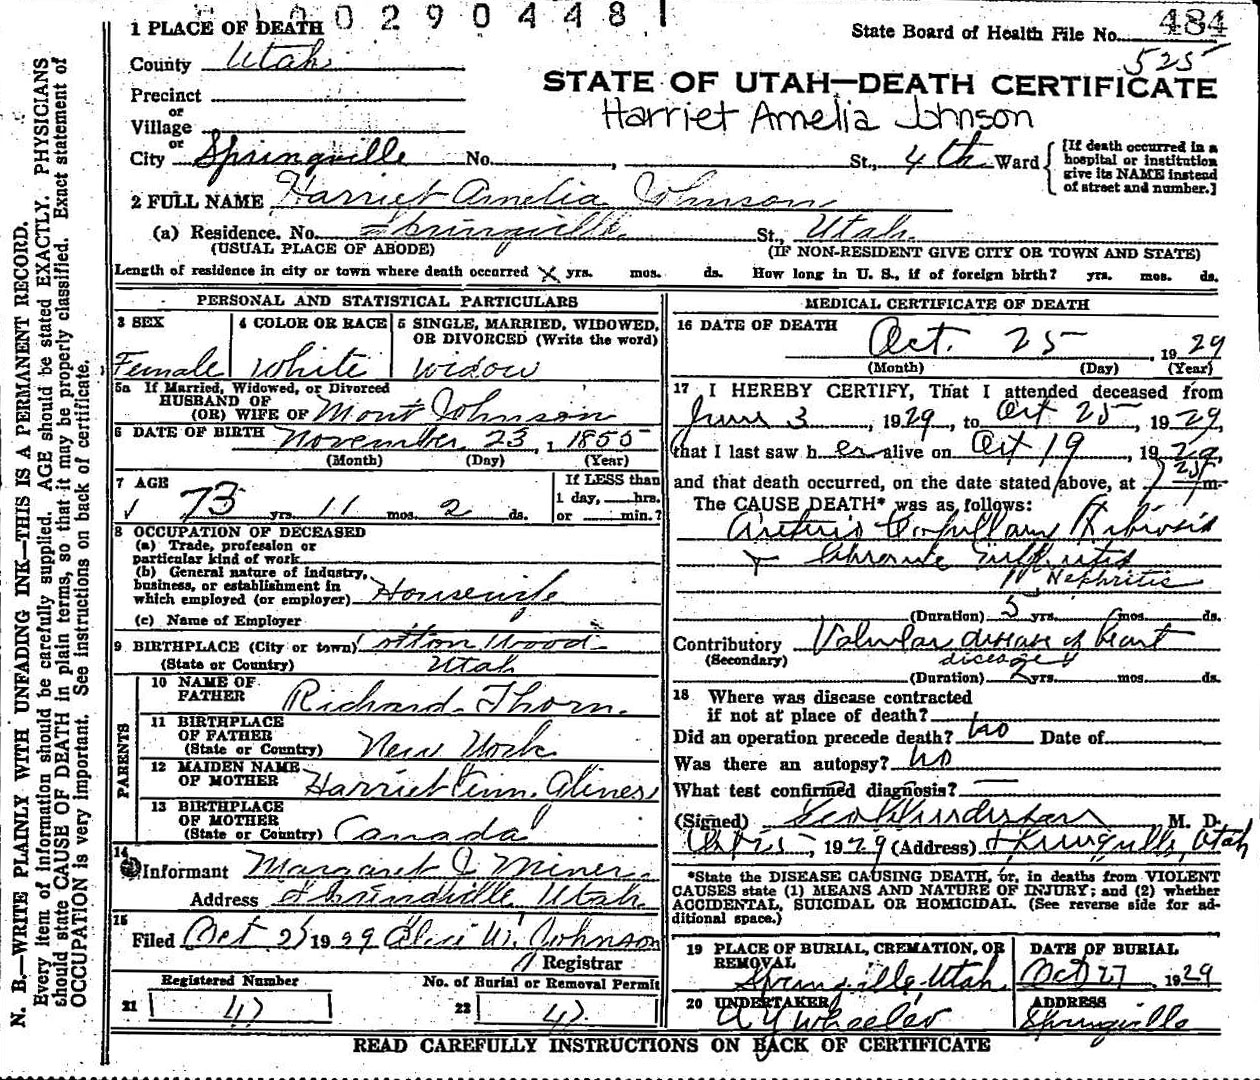 1 0 0 2 9 0 4 4 8 1
1 PLACE OF DEATH
State Board of Health File No. 484
525
County Utah
STATE OF UTAH—DEATH CERTIFICATE
Precinct
or
Village
Harriet Amelia Johnson
or
City Springville No. , St., 4th Ward
[If death occurred in a
hospital or institution
give its NAME instead
of street and number.]
2 FULL NAME Harriet Amelia Johnson
(a) Residence. No. Springville St., Utah.
(USUAL PLACE OF ABODE) (IF NON-RESIDENT GIVE CITY OR TOWN AND STATE)
Length of residence in city or town where death occurred X yrs. mos. ds. How long in U. S., if of foreign birth? yrs. mos. ds.
PERSONAL AND STATISTICAL PARTICULARS
3 SEX 4 COLOR OR RACE 5 SINGLE, MARRIED, WIDOWED,
OR DIVORCED (Write the word)
Female White Widow
5a If Married, Widowed, or Divorced
HUSBAND OF
(OR) WIFE OF Mont Johnson
6 DATE OF BIRTH November 23, 1855
(Month) (Day) (Year)
7 AGE
73 yrs. 11 mos. 2 ds.
If LESS than
1 day, hrs.
or min.?
8 OCCUPATION OF DECEASED
(a) Trade, profession or
particular kind of work
(b) General nature of industry,
business, or establishment in
which employed (or employer) Housewife
(c) Name of Employer
9 BIRTHPLACE (City or town) Cotton Wood
(State or Country) Utah
PARENTS
10 NAME OF
FATHER Richard Thorn.
11 BIRTHPLACE
OF FATHER
(State or Country) New York
12 MAIDEN NAME
OF MOTHER Harriet Ann
13 BIRTHPLACE
OF MOTHER
(State or Country) Canada
14
Informant Margaret J. Miner
Address Springville Utah
15
Filed Oct 1929 Alice W. Johnson
Registrar
Registered Number No. of Burial or Removal Permit
21 47 22 47
MEDICAL CERTIFICATE OF DEATH
16 DATE OF DEATH Oct. 25, 1929
(Month) (Day) (Year)
17 I HEREBY CERTIFY, That I attended deceased from
June 3, 1929, to Oct 25, 1929,
that I last saw her alive on Oct 19, 1929,
and that death occurred, on the date stated above, at m.
The CAUSE DEATH* was as follows:
Arterio Capillary Fibrosis
& Chronic Nephritis
Nephritis
(Duration) 5 yrs. mos. ds.
Contributory Valvular disease of heart
(Secondary) disease
(Duration) 2 yrs. mos. ds.
18 Where was disease contracted
if not at place of death?
Did an operation precede death? No Date of
Was there an autopsy? No
What test confirmed diagnosis? —
(Signed) M. D.
1929 (Address) Springville, Utah
*State the DISEASE CAUSING DEATH, or, in deaths from VIOLENT
CAUSES state (1) MEANS AND NATURE OF INJURY; and (2) whether
ACCIDENTAL, SUICIDAL OR HOMICIDAL. (See reverse side for ad-
ditional space.)
19 PLACE OF BURIAL, CREMATION, OR
REMOVAL
Springville, Utah.
DATE OF BURIAL
Oct 27, 1929
20 UNDERTAKER
A Y Wheeler
ADDRESS
Springville
READ CAREFULLY INSTRUCTIONS ON BACK OF CERTIFICATE
N. B.—WRITE PLAINLY WITH UNFADING INK—THIS IS A PERMANENT RECORD.
Every item of information should be carefully supplied. AGE should be stated EXACTLY. PHYSICIANS
should state CAUSE OF DEATH in plain terms, so that it may be properly classified. Exact statement of
OCCUPATION is very important. See instructions on back of certificate.